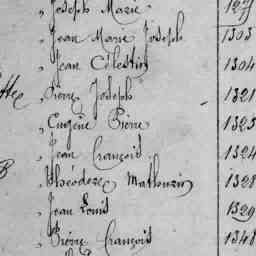 " Joseph Marie
" Jean Marie Joseph 1303
" Jean Célestin 1304
" Pierre Joseph 1321
" Eugène Pierre 1323
" Jean François 1324
" Théodore Mathurin 1328
" Jean Louis 1329
" Pierre François 1348